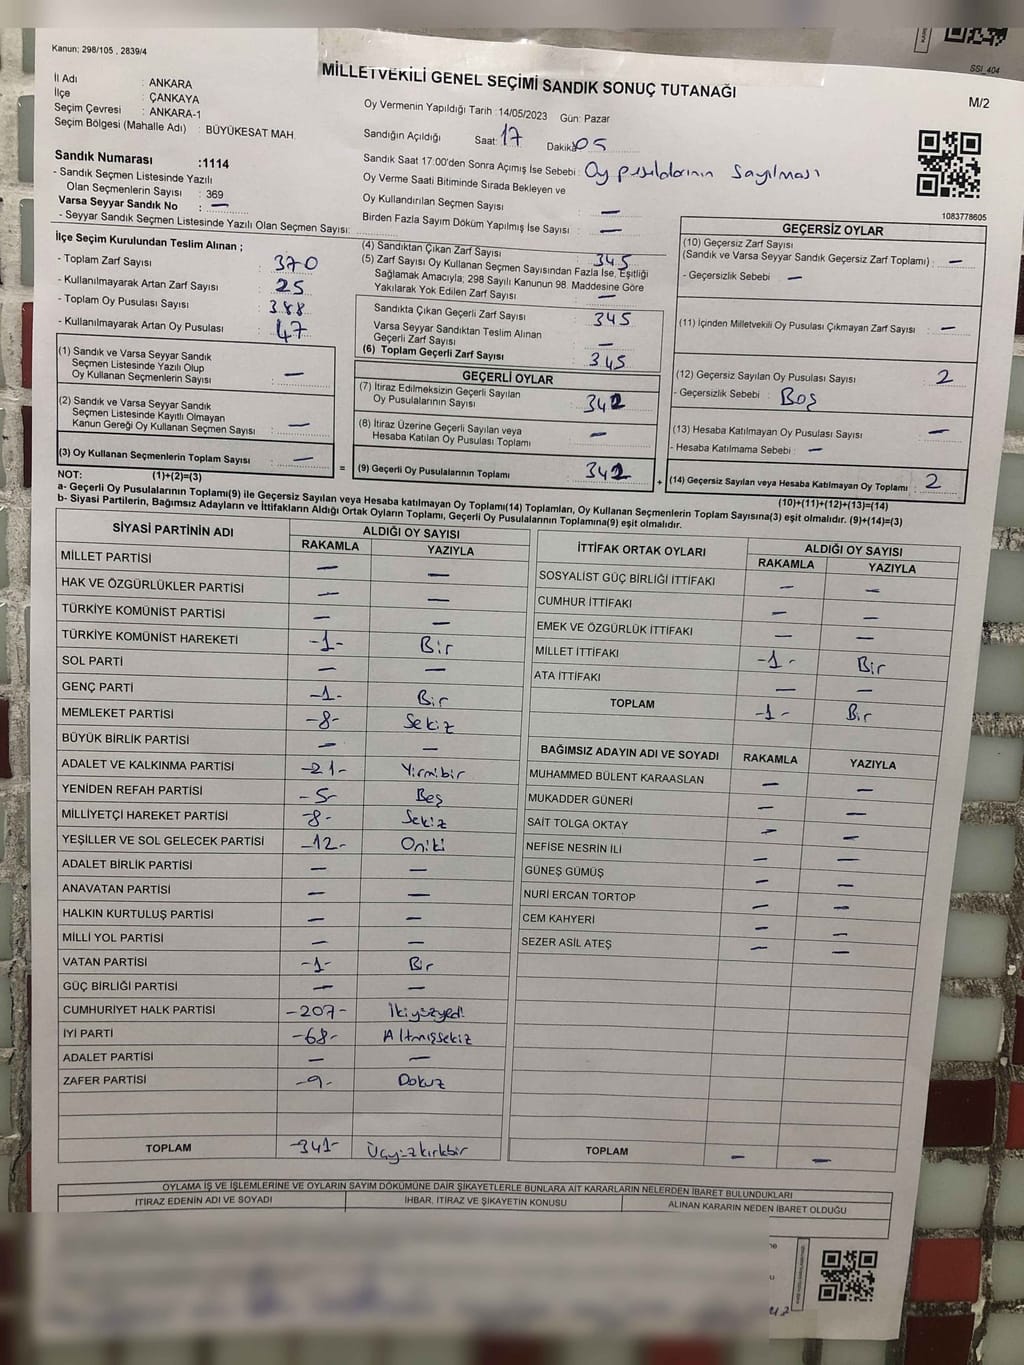 Kanun; 298/105 , 2839/4
SSI_404
MİLLETVEKİLİ GENEL SEÇİMİ SANDIK SONUÇ TUTANAĞI
M/2
İl Adı : ANKARA
İlçe : ÇANKAYA
Seçim Çevresi : ANKARA-1
Seçim Bölgesi (Mahalle Adı) : BÜYÜKESAT MAH.
Oy Vermenin Yapıldığı Tarih : 14/05/2023 Gün: Pazar
Sandığın Açıldığı Saat: 17 Dakika: 05
Sandık Saat 17:00'den Sonra Açımış İse Sebebi : Oy pusulalarının sayılması
Oy Verme Saati Bitiminde Sırada Bekleyen ve
Oy Kullandırılan Seçmen Sayısı : —
Birden Fazla Sayım Döküm Yapılmış İse Sayısı : —
1083778605
Sandık Numarası :1114
- Sandık Seçmen Listesinde Yazılı
Olan Seçmenlerin Sayısı : 369
Varsa Seyyar Sandık No : —
- Seyyar Sandık Seçmen Listesinde Yazılı Olan Seçmen Sayısı:
İlçe Seçim Kurulundan Teslim Alınan ;
- Toplam Zarf Sayısı : 370
- Kullanılmayarak Artan Zarf Sayısı : 25
- Toplam Oy Pusulası Sayısı : 388
- Kullanılmayarak Artan Oy Pusulası : 47
(1) Sandık ve Varsa Seyyar Sandık
Seçmen Listesinde Yazılı Olup
Oy Kullanan Seçmenlerin Sayısı : —
(2) Sandık ve Varsa Seyyar Sandık
Seçmen Listesinde Kayıtlı Olmayan
Kanun Gereği Oy Kullanan Seçmen Sayısı : —
(3) Oy Kullanan Seçmenlerin Toplam Sayısı : —
(4) Sandıktan Çıkan Zarf Sayısı : 345
(5) Zarf Sayısı Oy Kullanan Seçmen Sayısından Fazla İse, Eşitliği
Sağlamak Amacıyla; 298 Sayılı Kanunun 98. Maddesine Göre
Yakılarak Yok Edilen Zarf Sayısı : —
Sandıkta Çıkan Geçerli Zarf Sayısı : 345
Varsa Seyyar Sandıktan Teslim Alınan
Geçerli Zarf Sayısı : —
(6) Toplam Geçerli Zarf Sayısı : 345
GEÇERLİ OYLAR
(7) İtiraz Edilmeksizin Geçerli Sayılan
Oy Pusulalarının Sayısı : 342
(8) İtiraz Üzerine Geçerli Sayılan veya
Hesaba Katılan Oy Pusulası Toplamı : —
= (9) Geçerli Oy Pusulalarının Toplamı : 342
GEÇERSİZ OYLAR
(10) Geçersiz Zarf Sayısı
(Sandık ve Varsa Seyyar Sandık Geçersiz Zarf Toplamı) : —
- Geçersizlik Sebebi : —
(11) İçinden Milletvekili Oy Pusulası Çıkmayan Zarf Sayısı : —
(12) Geçersiz Sayılan Oy Pusulası Sayısı : 2
- Geçersizlik Sebebi : Boş
(13) Hesaba Katılmayan Oy Pusulası Sayısı : —
- Hesaba Katılmama Sebebi : —
+ (14) Geçersiz Sayılan veya Hesaba Katılmayan Oy Toplamı : 2
NOT: (1)+(2)=(3)
(10)+(11)+(12)+(13)=(14)
a- Geçerli Oy Pusulalarının Toplamı(9) ile Geçersiz Sayılan veya Hesaba katılmayan Oy Toplamı(14) Toplamları, Oy Kullanan Seçmenlerin Toplam Sayısına(3) eşit olmalıdır. (9)+(14)=(3)
b- Siyasi Partilerin, Bağımsız Adayların ve İttifakların Aldığı Ortak Oyların Toplamı, Geçerli Oy Pusulalarının Toplamına(9) eşit olmalıdır.
SİYASİ PARTİNİN ADI ALDIĞI OY SAYISI
RAKAMLA YAZIYLA
MİLLET PARTİSİ — —
HAK VE ÖZGÜRLÜKLER PARTİSİ — —
TÜRKİYE KOMÜNİST PARTİSİ — —
TÜRKİYE KOMÜNİST HAREKETİ -1- Bir
SOL PARTİ — —
GENÇ PARTİ -1- Bir
MEMLEKET PARTİSİ -8- Sekiz
BÜYÜK BİRLİK PARTİSİ — —
ADALET VE KALKINMA PARTİSİ -21- Yirmibir
YENİDEN REFAH PARTİSİ -5- Beş
MİLLİYETÇİ HAREKET PARTİSİ -8- Sekiz
YEŞİLLER VE SOL GELECEK PARTİSİ -12- Oniki
ADALET BİRLİK PARTİSİ — —
ANAVATAN PARTİSİ — —
HALKIN KURTULUŞ PARTİSİ — —
MİLLİ YOL PARTİSİ — —
VATAN PARTİSİ -1- Bir
GÜÇ BİRLİĞİ PARTİSİ — —
CUMHURİYET HALK PARTİSİ -207- İkiyüzyedi
İYİ PARTİ -68- Altmışsekiz
ADALET PARTİSİ — —
ZAFER PARTİSİ -9- Dokuz
TOPLAM -341- Üçyüzkırkbir
İTTİFAK ORTAK OYLARI ALDIĞI OY SAYISI
RAKAMLA YAZIYLA
SOSYALİST GÜÇ BİRLİĞİ İTTİFAKI — —
CUMHUR İTTİFAKI — —
EMEK VE ÖZGÜRLÜK İTTİFAKI — —
MİLLET İTTİFAKI -1- Bir
ATA İTTİFAKI — —
TOPLAM -1- Bir
BAĞIMSIZ ADAYIN ADI VE SOYADI RAKAMLA YAZIYLA
MUHAMMED BÜLENT KARAASLAN — —
MUKADDER GÜNERİ — —
SAİT TOLGA OKTAY — —
NEFİSE NESRİN İLİ — —
GÜNEŞ GÜMÜŞ — —
NURİ ERCAN TORTOP — —
CEM KAHYERİ — —
SEZER ASİL ATEŞ — —
TOPLAM — —
OYLAMA İŞ VE İŞLEMLERİNE VE OYLARIN SAYIM DÖKÜMÜNE DAİR ŞİKAYETLERLE BUNLARA AİT KARARLARIN NELERDEN İBARET BULUNDUKLARI
İTİRAZ EDENİN ADI VE SOYADI İHBAR, İTİRAZ VE ŞİKAYETİN KONUSU ALINAN KARARIN NEDEN İBARET OLDUĞU